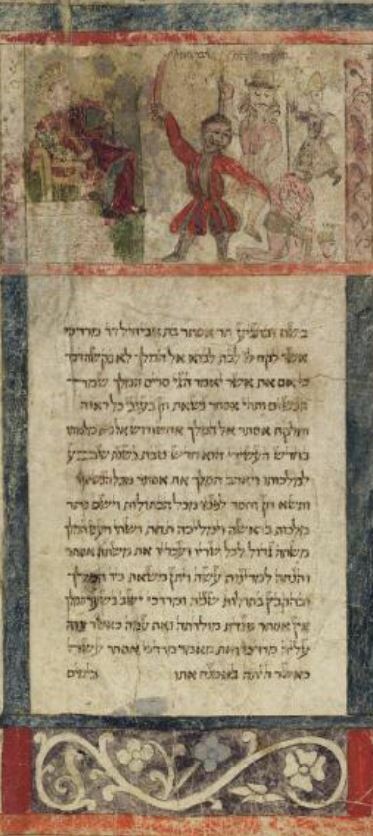 בשם ובהגיע תר אסתר בת אביחיל דד מרדכי
אשר לקח לו לבת לבוא אל המלך לא בקשה דבר
כי אם את אשר יאמר הגי סריס המלך שמר
הנשים ותהי אסתר נשאת חן בעיני כל ראיה
ותלקח אסתר אל המלך אחשורוש אל בית מלכותו
בחדש העשירי הוא חדש טבת בשנת שבע
למלכותו ויאהב המלך את אסתר מכל הנשים
ותשא חן וחסד לפניו מכל הבתולות וישם כתר
מלכות בראשה וימליכה תחת ושתי ויעש המלך
משתה גדול לכל שריו ועבדיו את משתה אסתר
והנחה למדינות עשה ויתן משאת כיד המלך
ובהקבץ בתולות שנית ומרדכי ישב בשער המלך
אין אסתר מגדת מולדתה ואת עמה כאשר צוה
עליה מרדכי ואת מאמר מרדכי אסתר עשה
כאשר היתה באמנה אתו בימים